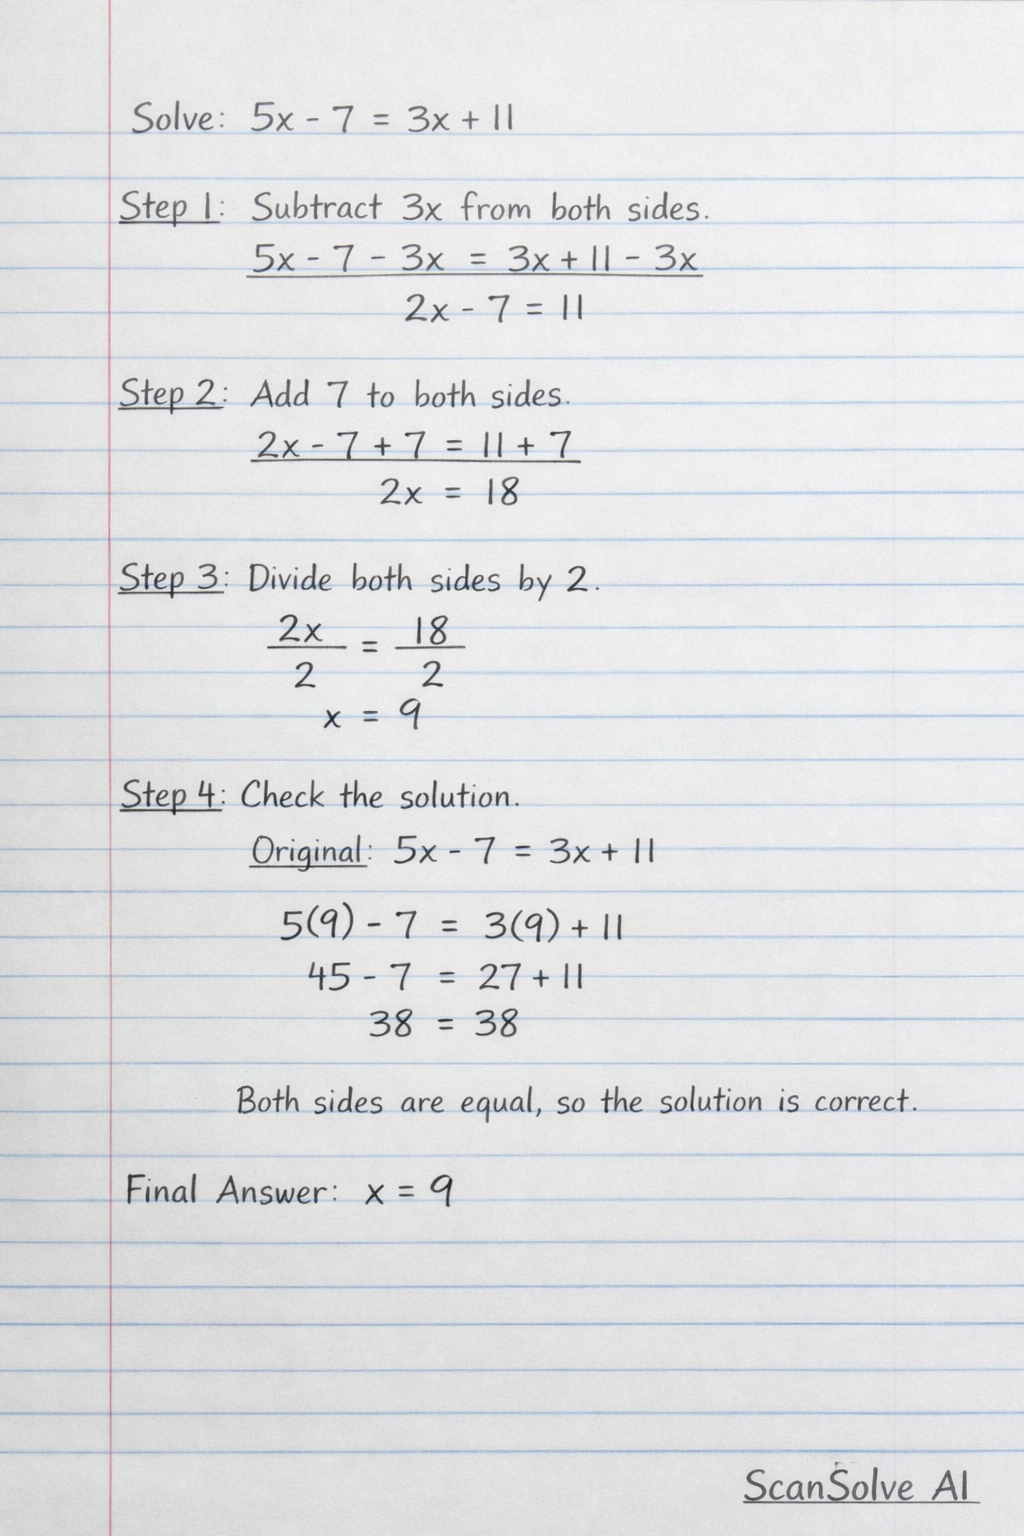 Solve: 5x - 7 = 3x + 11
Step 1: Subtract 3x from both sides.
5x - 7 - 3x = 3x + 11 - 3x
2x - 7 = 11
Step 2: Add 7 to both sides.
2x - 7 + 7 = 11 + 7
2x = 18
Step 3: Divide both sides by 2.
2x/2 = 18/2
x = 9
Step 4: Check the solution.
Original: 5x - 7 = 3x + 11
5(9) - 7 = 3(9) + 11
45 - 7 = 27 + 11
38 = 38
Both sides are equal, so the solution is correct.
Final Answer: x = 9
ScanSolve AI